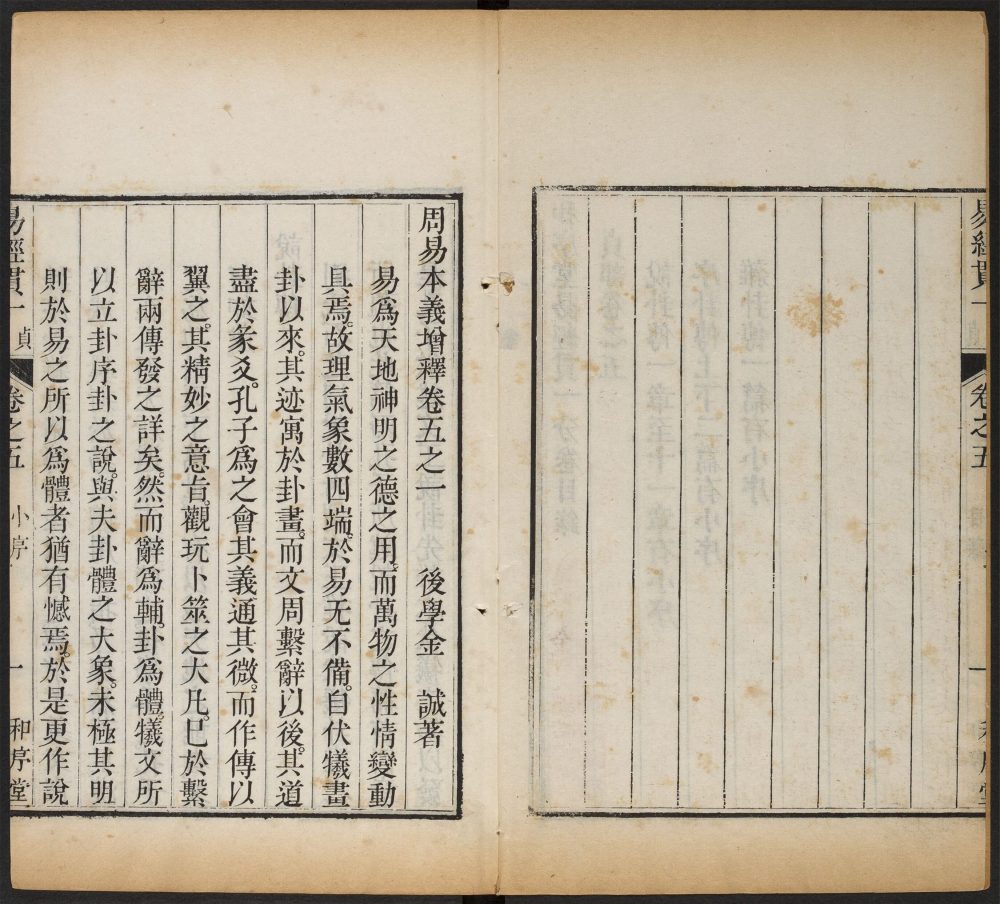 易經貫一 貞 卷之五 一 和序堂
周易本義增釋卷五之一 後學金 誠著
易爲天地神明之德之用。而萬物之性情變動
具焉。故理氣象數四端。於易无不備。自伏犧畫
卦以來。其迹寓於卦畫。而文周繫辭以後。其道
盡於彖爻。孔子爲之會其義通其微。而作傳以
翼之。其精妙之意旨。觀玩卜筮之大凡。巳於繫
辭兩傳發之詳矣。然而辭爲輔。卦爲體。犧文所
以立卦序卦之說。與夫卦體之大象。未極其明
則於易之所以爲體者猶有憾焉。於是更作說
易經貫一 貞 卷之五 小序 一 和序堂